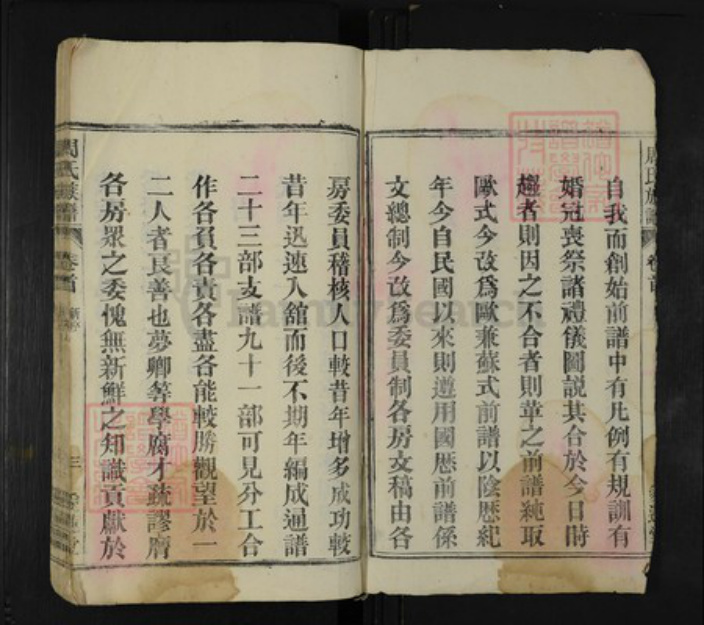 自我而創始前譜中有凡例有規訓有
婚冠喪祭諸禮儀圖説其合於今日時
趨者則因之不合者則革之前譜純取
歐式今改爲歐兼蘇式前譜以陰歷紀
年今自民國以來則遵用國歷前譜係
文總制今改爲委員制各房文稿由各
房委員稽核人口較昔年增多成功較
昔年迅速入舘而後不期年編成通譜
二十三部支譜九十一部可見分工合
作各負各責各盡各能較勝觀望於一
二人者良善也夢卿等學腐才疏謬膺
各房眾之委愧無新鮮之知識貢獻於
周氏族譜 卷首 三
FamilySearch